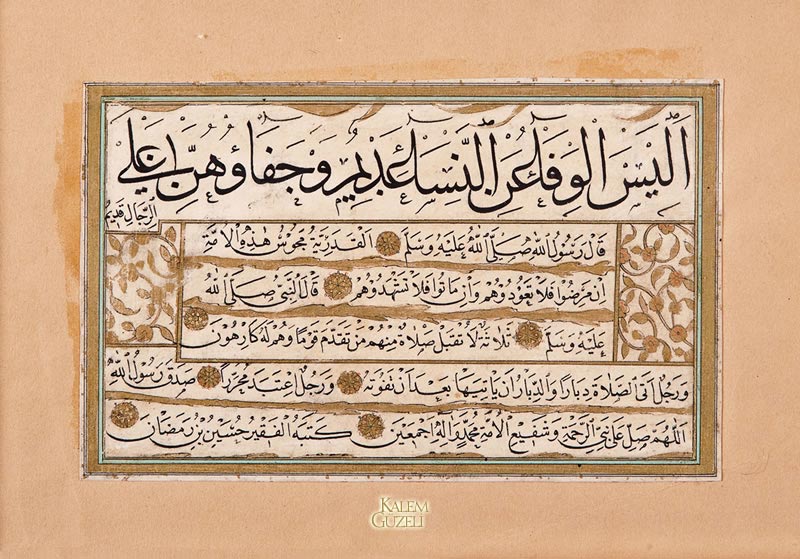 اليس الوفاء عن النساء عديم وجفاؤهن على
الرجال قديم
قال رسول الله صلى الله عليه وسلم القدرية مجوس هذه الامة
ان مرضوا فلا تعودوهم وان ماتوا فلا تشهدوهم قال النبي صلى الله
عليه وسلم ثلاثة لا تقبل صلاة منهم من تقدم قوما وهم له كارهون
ورجل اتى الصلاة دبارا والدبار ان ياتيها بعد ان تفوته ورجل اعتبد محررا صدق رسول الله
اللهم صل على نبي الرحمة وشفيع الامة محمد واله اجمعين كتبه الفقير حسين بن رمضان
KALEM
GÜZELİ